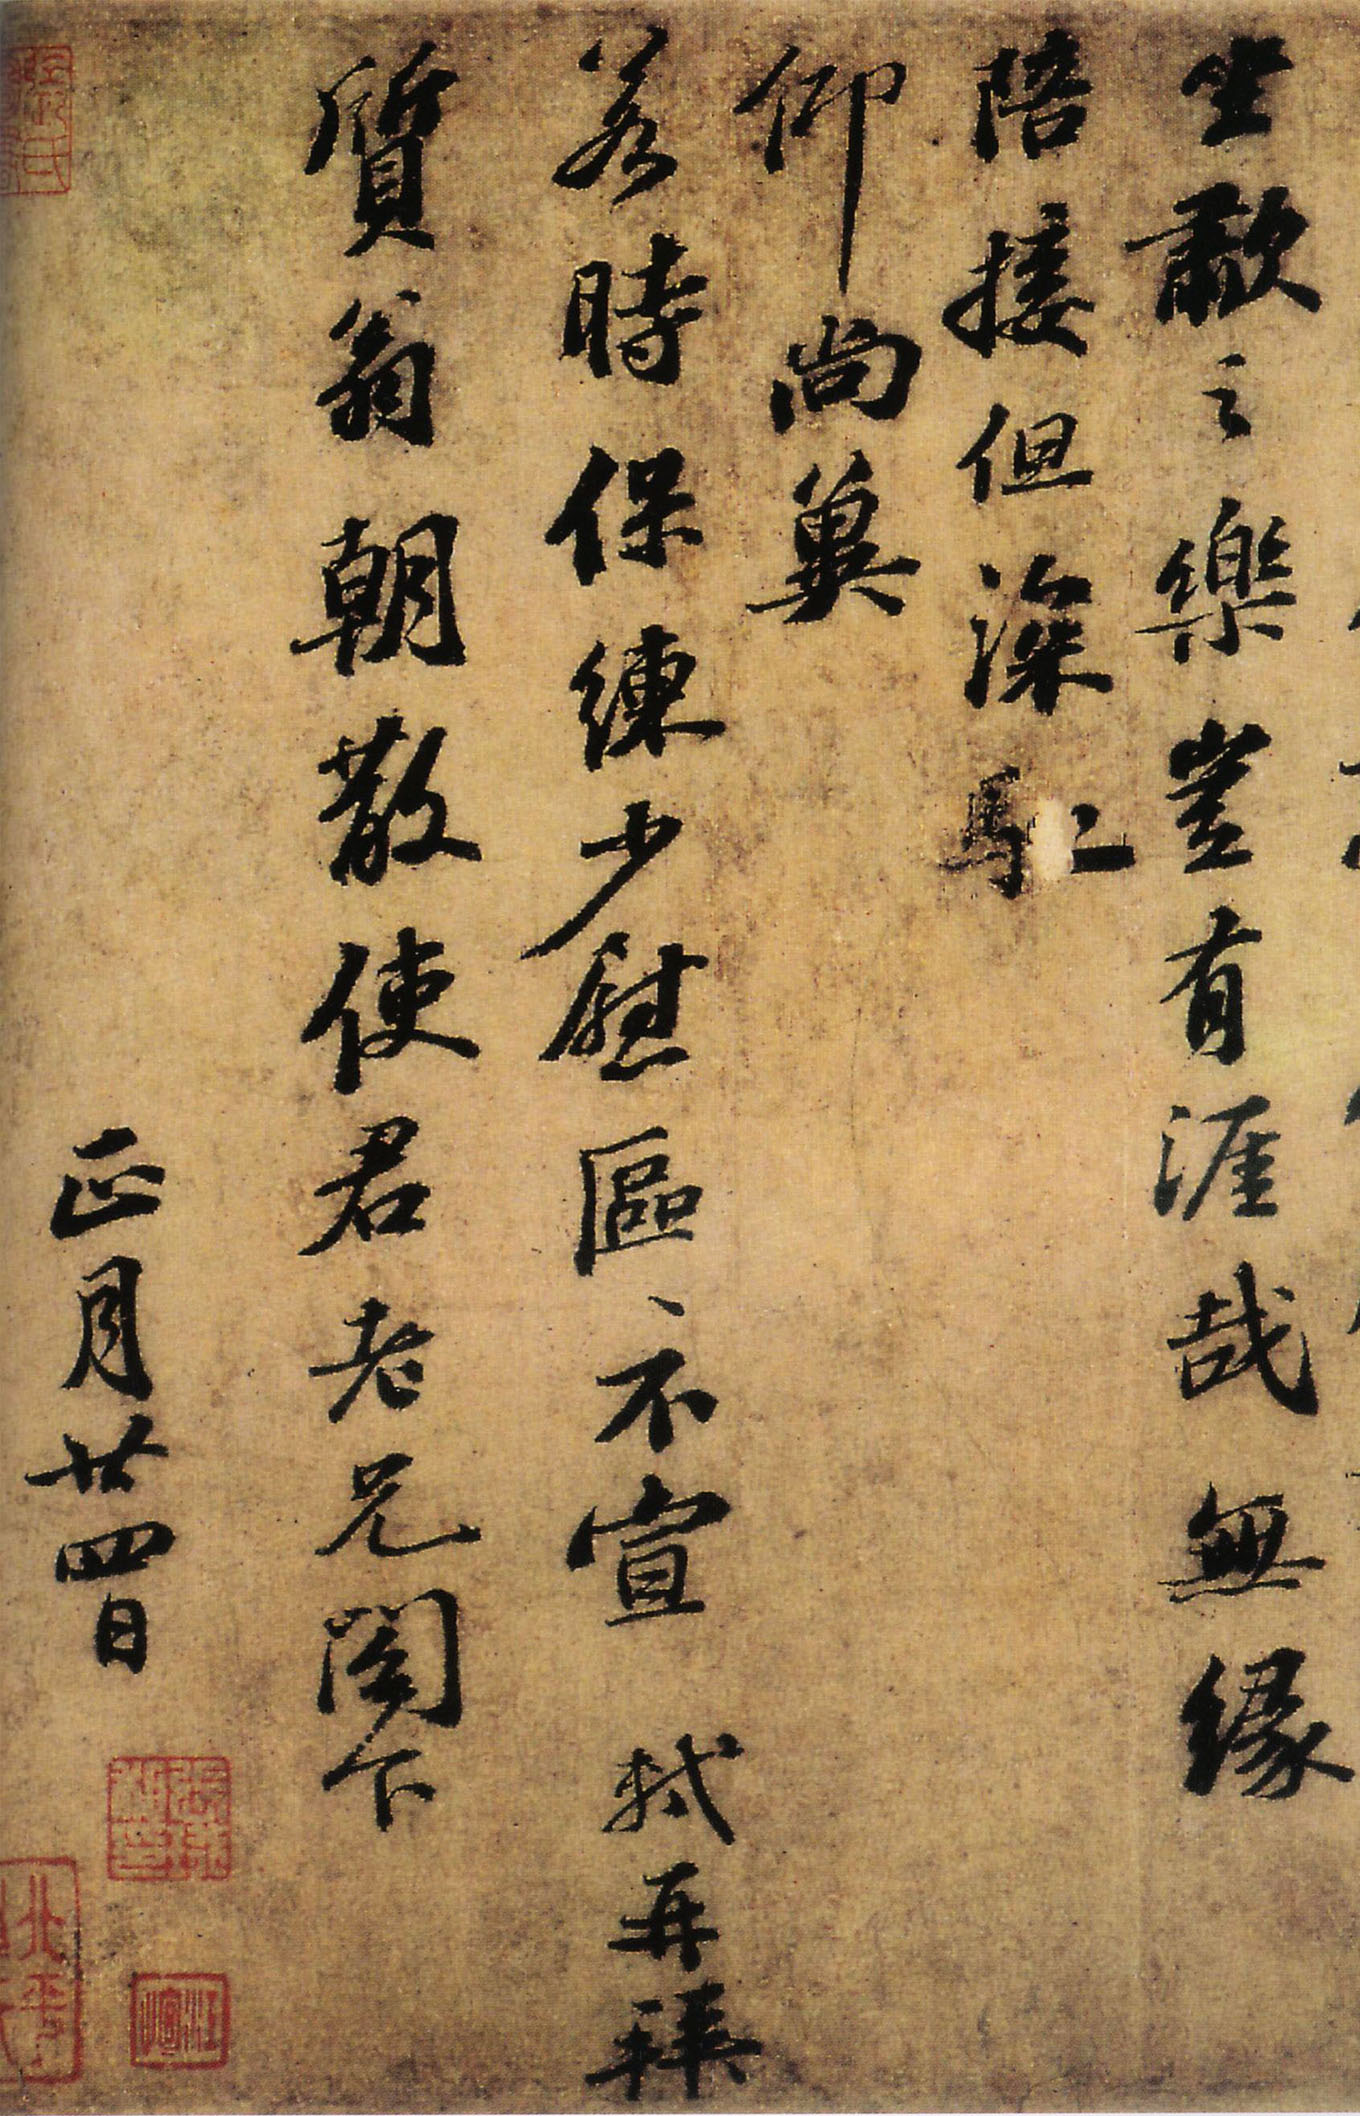 坐歗之樂豈有涯哉無緣
陪接但深馳
仰尚冀
若時保練少慰區〻不宣 軾再拜
質翁朝散使君老兄閤下
正月廿四日